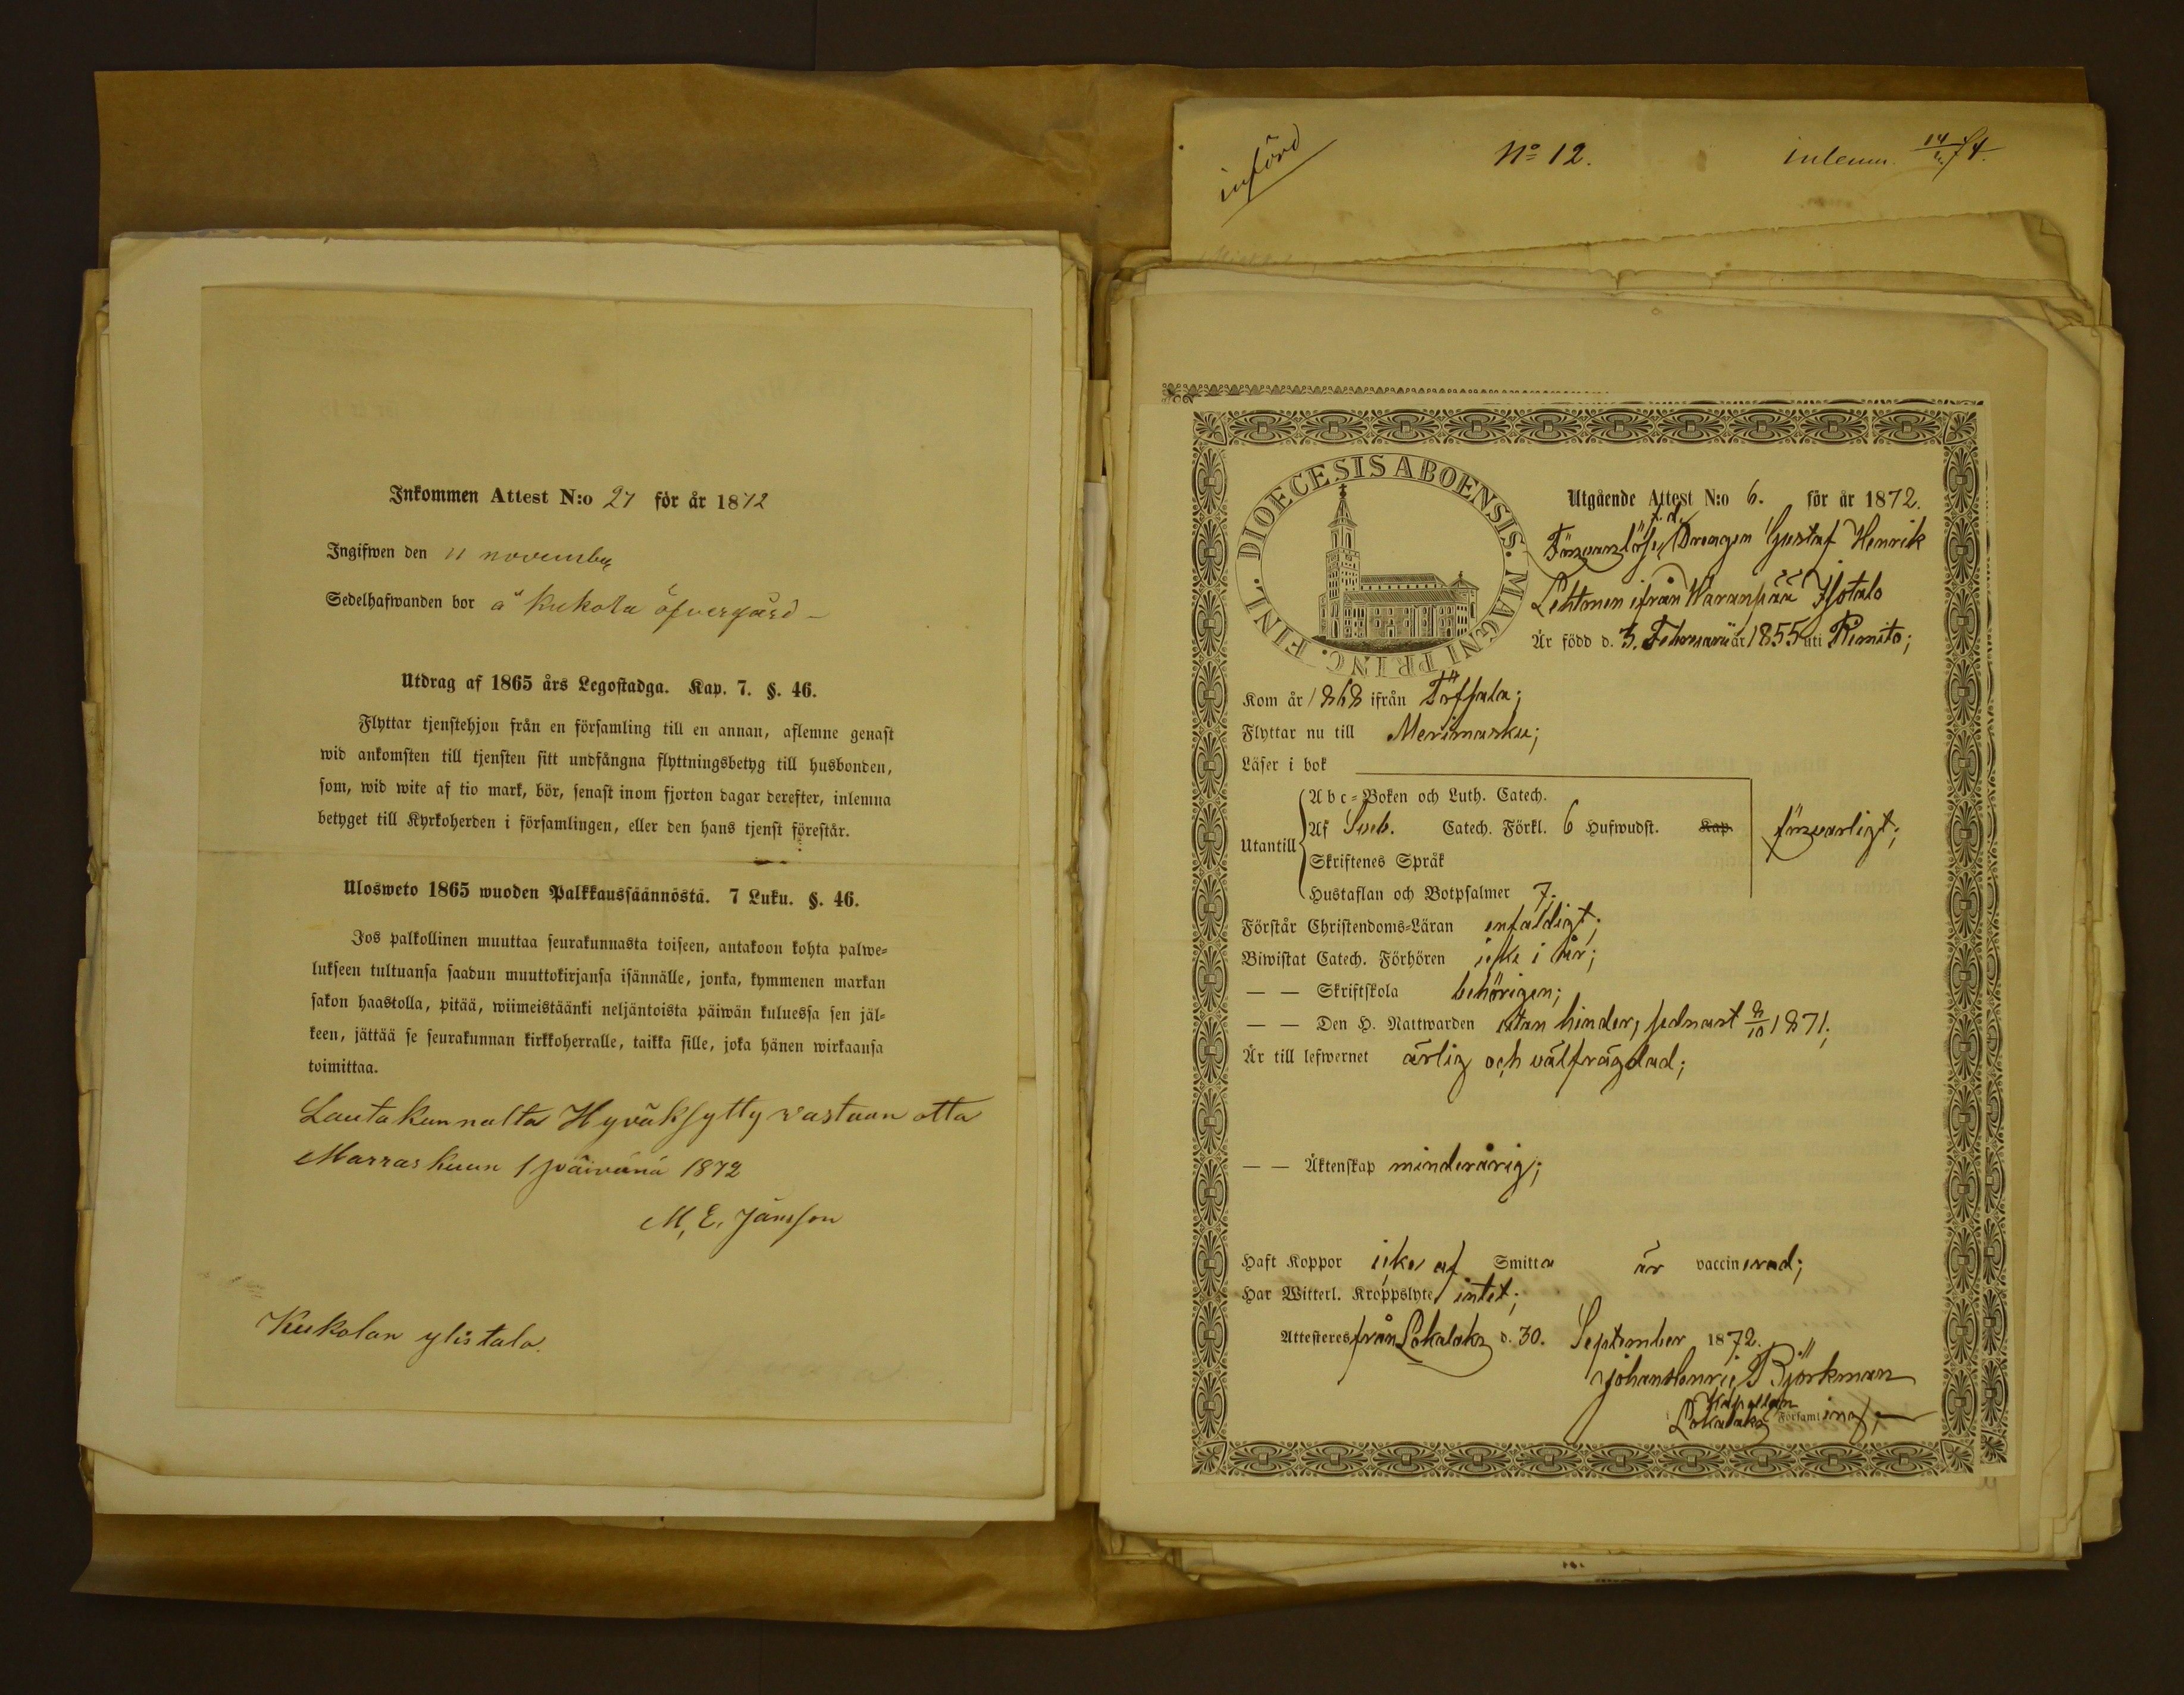 Inkommen Attest N:o 27 för år 1872
Ingifwen den 11 november
Sedelhafwanden bor å Kukola öfvergård –
Utdrag af 1865 års Legostadga. Kap. 7. §. 46.
Flyttar tjenstehjon från en församling till en annan, aflemne genast
wid ankomsten till tjensten sitt undfångna flyttningsbetyg till husbonden,
som, wid wite af tio mark, bör, senast inom fjorton dagar derefter, inlemna
betyget till Kyrkoherden i församlingen, eller den hans tjenst förestår.
Ulosweto 1865 wuoden Palkkaussäännöstä. 7 Luku. §. 46.
Jos palkollinen muuttaa seurakunnasta toiseen, antakoon kohta palwe-
lukseen tultuansa saadun muuttokirjansa isännälle, jonka, kymmenen markan
sakon haastolla, pitää, wiimeistäänki neljäntoista päiwän kuluessa sen jäl-
keen, jättää se seurakunnan kirkkoherralle, taikka sille, joka hänen wirkaansa
toimittaa.
Lautakunnalta Hyväksytty vastaan otta
Marraskuun 1 päivänä 1872
M, E, Jansson
Kukolan ylistalo.
införd
No 12.
inlemn. 14/74.
DIOECESIS ABOENSIS. MAGNI PRINC. FINL.
Utgående Attest N:o 6. för år 1872.
f. d.
Försvarslöse Drengen Gustaf Henrik
Lehtonen ifrån Waranpää Isotalo
Är född d. 3. Februarii år 1855 uti Rimito;
Kom år 1868 ifrån Töfsala;
Flyttar nu till Merimasku;
Läser i bok
Abc-Boken och Luth. Catech.
Af Sveb. Catech. Förkl. 6 Hufwudst. Kap.
försvarligt;
Utantill
Skriftenes Språk
Hustaflan och Botpsalmer 7;
Förstår Christendoms-Läran enfaldigt;
Biwistat Catech. Förhören icke i år;
— — Skriftskola behörigen;
— — Den H. Nattwarden utan hinder, sednast 8/10 1871;
Är till lefwernet ärlig och välfrägdad;
— — Äktenskap minderårig;
Haft Koppor icke af Smitta är vaccinerad;
Har Witterl. Kroppslyte intet;
Attesteres från Lokalaks d. 30. September 1872.
Johan Henric Björkman
Kapellan
Lokalaks Församling,